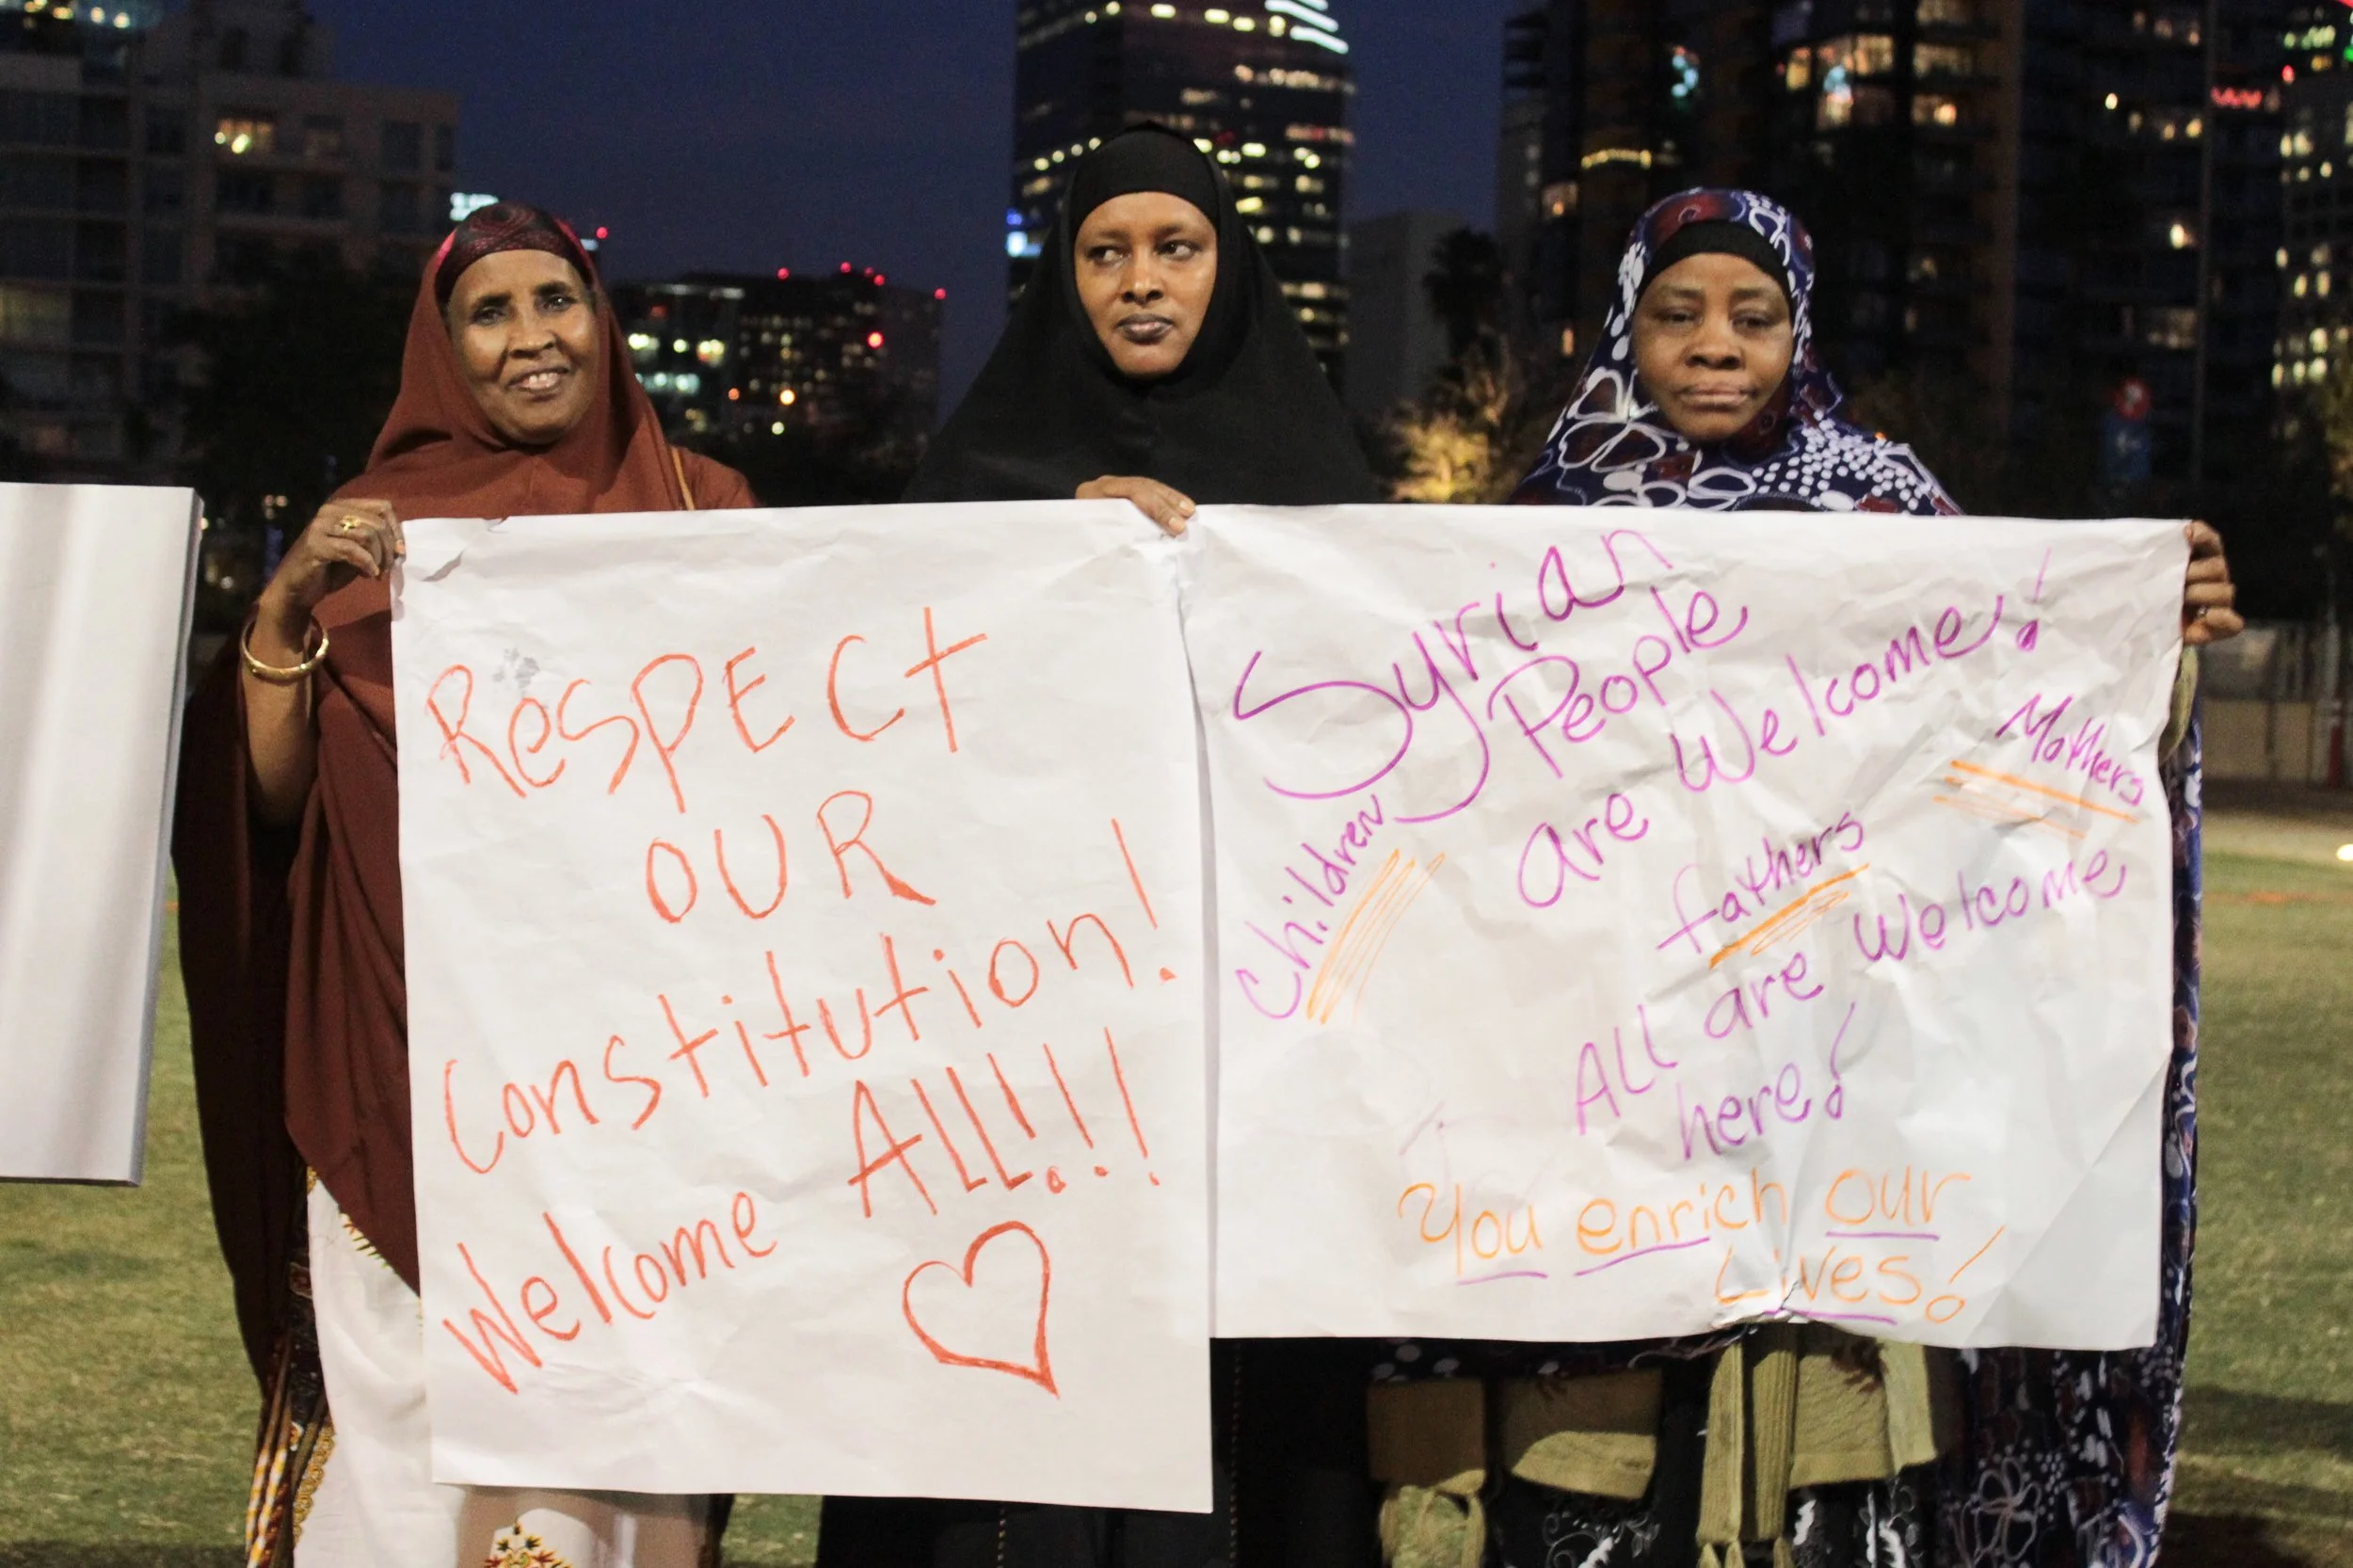 RespECt
OUR
Constitution!
Welcome All!!!
Syrian
People
are Welcome!
Children
Mothers
fathers
All are Welcome
here!
You enrich our
Lives!